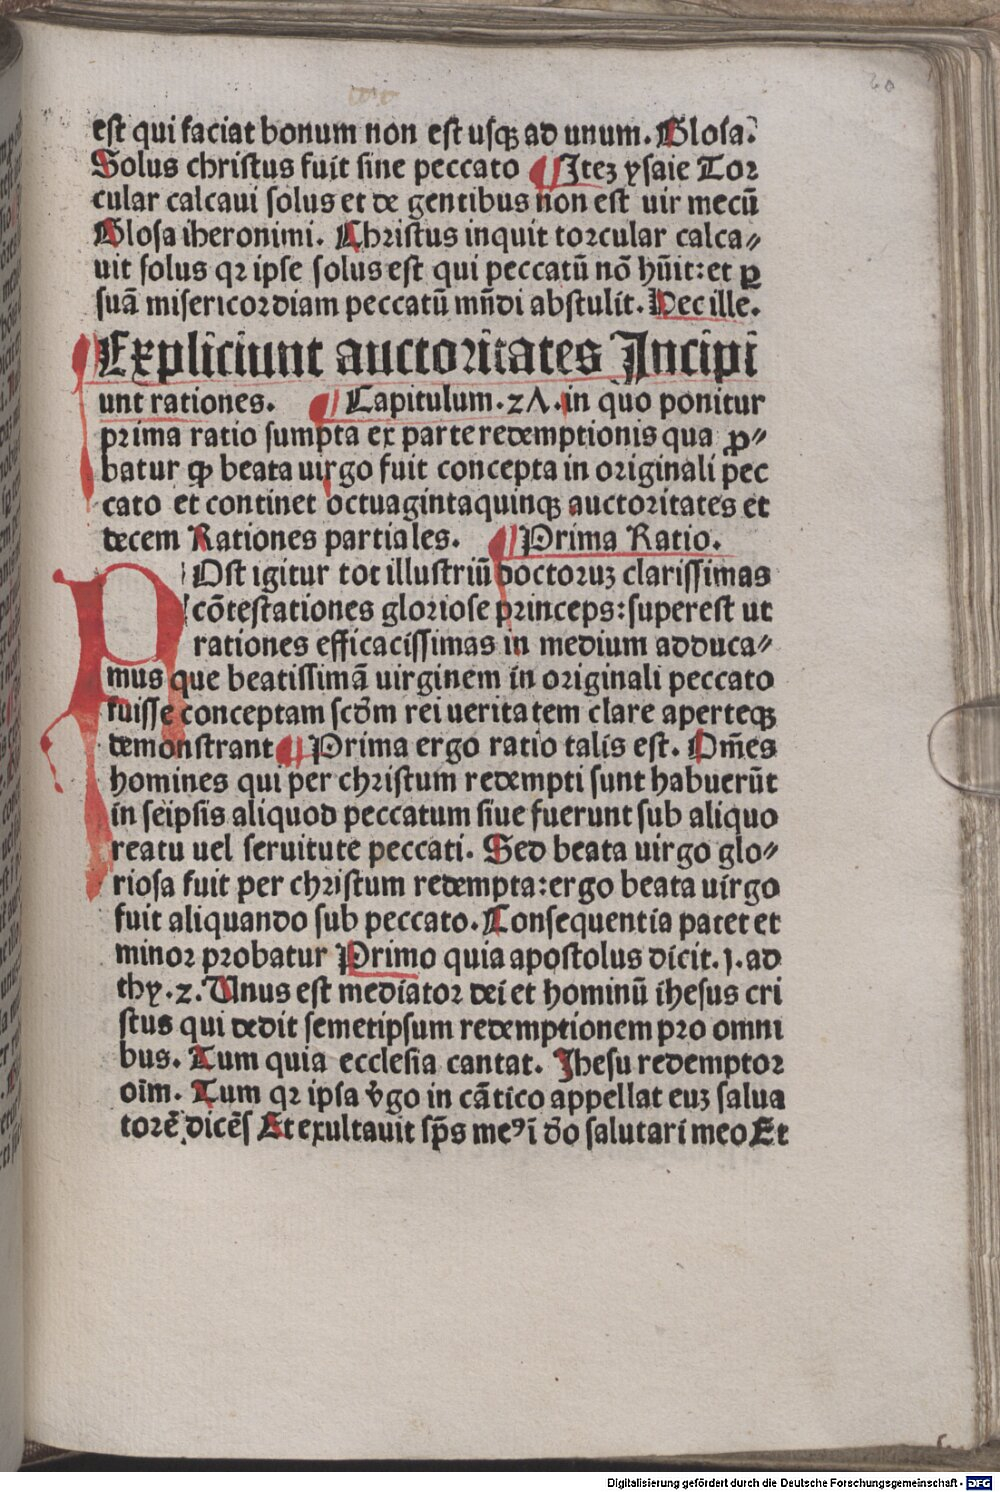 60
est qui faciat bonum non est usqꝫ ad unum. Glosa.
Solus christus fuit sine peccato ¶ Iteꝫ ysaie Tor
cular calcaui solus et de gentibus non est uir mecū
Glosa iheronimi. Christus inquit torcular calca⸗
uit solus qꝛ ipse solus est qui peccatū nō hūit: et ꝑ
suā misericordiam peccatū mūdi abstulit. Hec ille.
¶ Expliciunt auctoritates Incipi
unt rationes. ¶ Capitulum .2Λ. in quo ponitur
prima ratio sumpta ex parte redemptionis qua ꝓ⸗
batur ꝙ beata uirgo fuit concepta in originali pec
cato et continet octuagintaquinqꝫ auctoritates et
decem Rationes partiales. ¶ Prima Ratio.
POst igitur tot illustriū doctoruꝫ clarissimas
cōtestationes gloriose princeps: superest ut
rationes efficacissimas in medium adduca⸗
mus que beatissimā uirginem in originali peccato
fuisse conceptam scd̄m rei ueritatem clare aperteqꝫ
demonstrant ¶ Prima ergo ratio talis est. Om̄es
homines qui per christum redempti sunt habuerūt
in seipsis aliquod peccatum siue fuerunt sub aliquo
reatu uel seruitute peccati. Sed beata uirgo glo⸗
riosa fuit per christum redempta: ergo beata uirgo
fuit aliquando sub peccato. Consequentia patet et
minor probatur Primo quia apostolus dicit .1. ad
thy .2. Unus est mediator dei et hominū ihesus cri
stus qui dedit semetipsum redemptionem pro omni
bus. Tum quia ecclesia cantat. Ihesu redemptor
oīm. Tum qꝛ ipsa v̄go in cātico appellat euꝫ salua
torē dicēs Et exultauit sp̄s meꝰ ī d̄o salutari meo Et
Digitalisierung gefördert durch die Deutsche Forschungsgemeinschaft - DFG